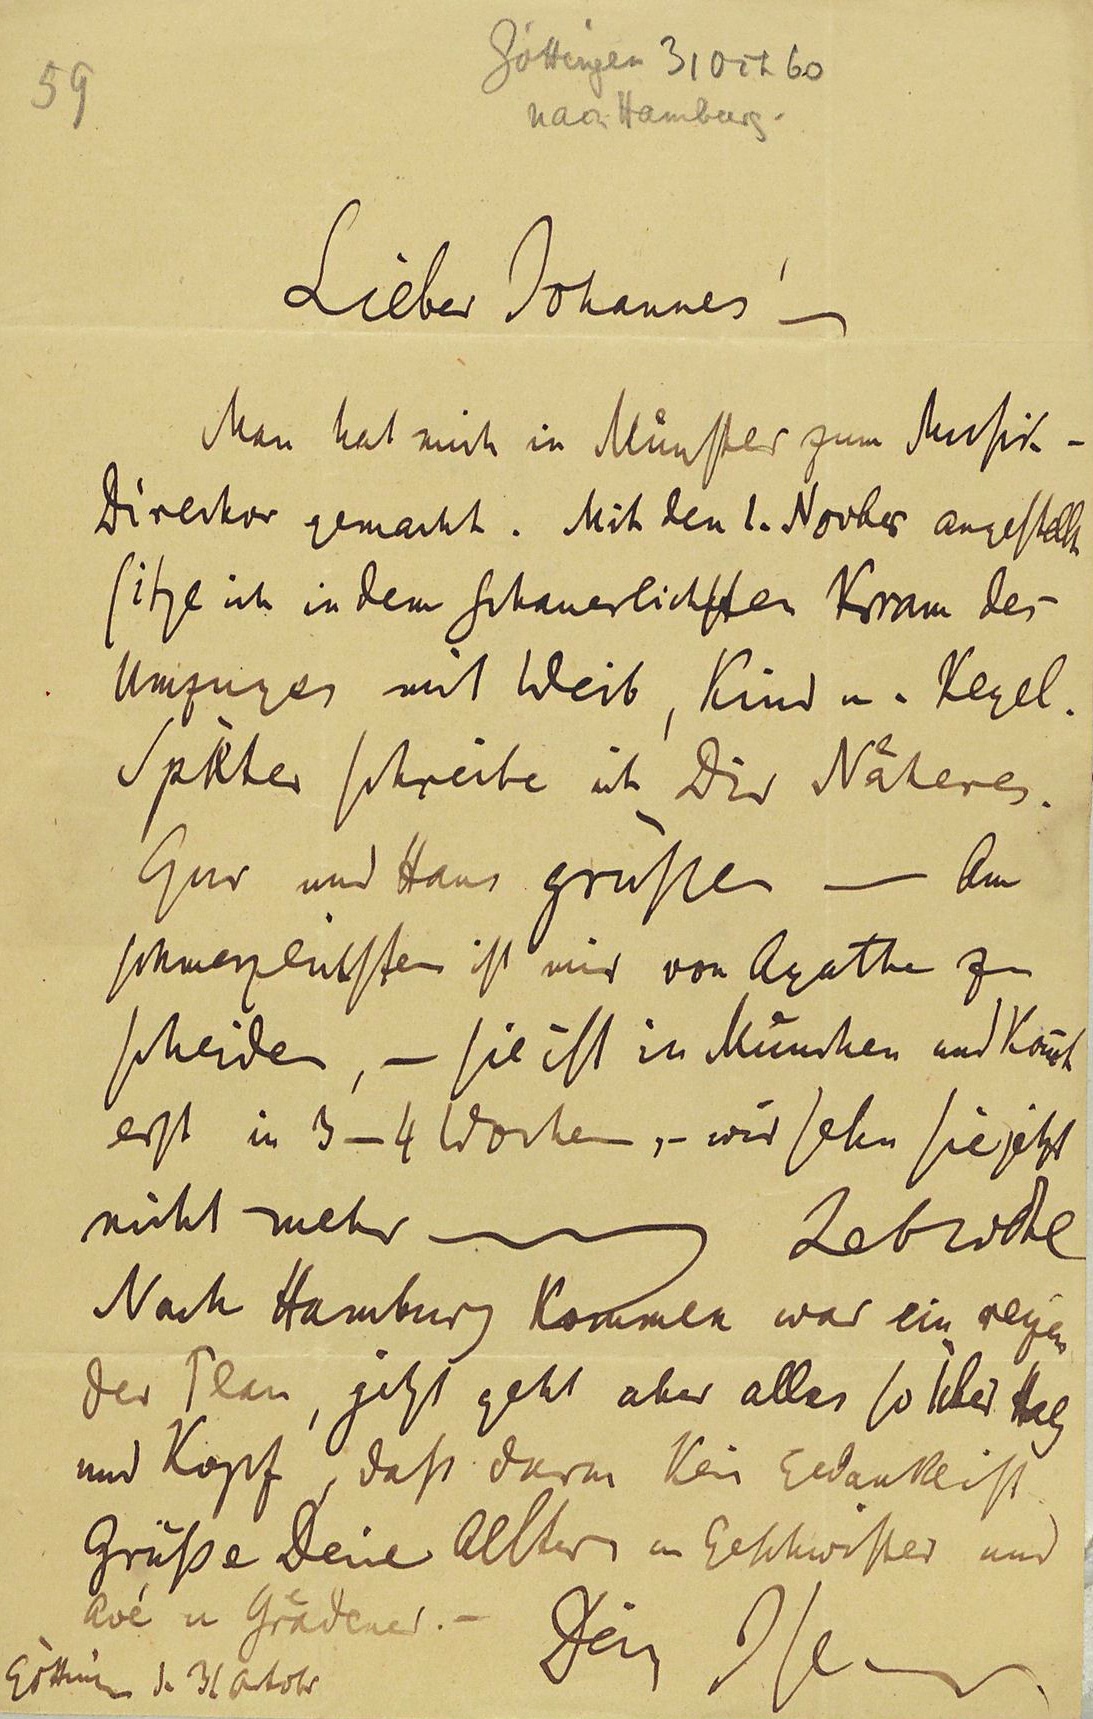 59
Göttingen 31 Oct 60
nach Hamburg.
Lieber Johannes!
Man hat mich in Münster zum Musik-
Direktor gemacht. Mit den 1. Novber angestellt
sitze ich in dem schauerlichsten Kram des
Umzuges mit Weib, Kind u. Kegel.
Später schreibe ich Dir Näheres.
Gur und Hans grüßen — Am
schmerzlichsten ist mir von Agathe zu
scheiden, — sie ist in München und kom̄t
erst in 3–4 Wochen, – wir sehn sie jetzt
nicht mehr — Lebwohl
Nach Hamburg kommen war ein reizen
der Plan, jetzt geht aber alles so über Hals
und Kopf, daß daran kein Gedanke ist
Grüße Deine Aeltern u Geschwister und
Avé u Grädener. –
Dein Ise
Göttingen d. 31 Octobr